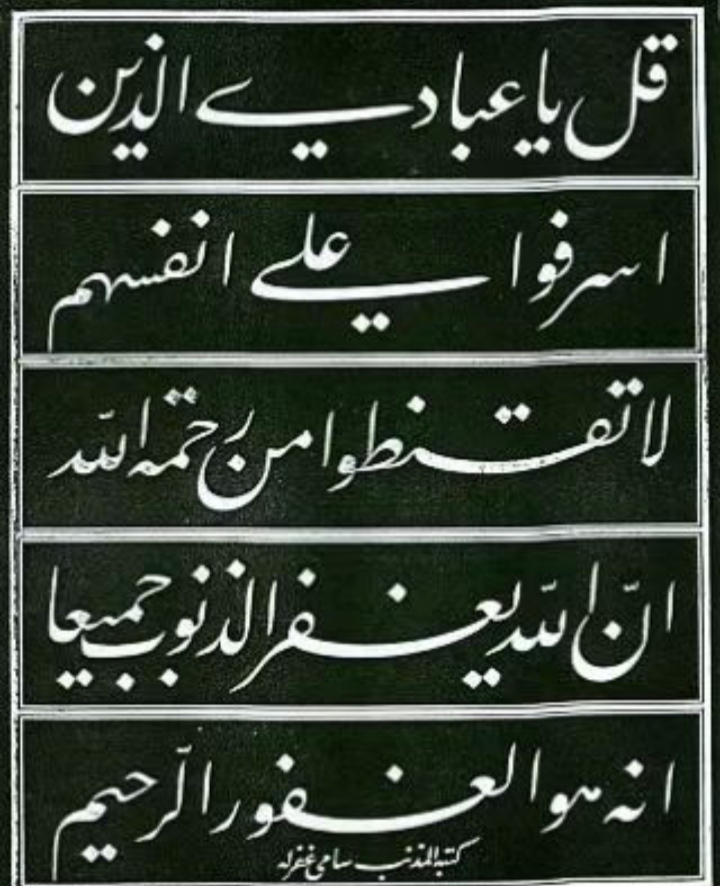 قل يا عبادي الذين
اسرفوا علي انفسهم
لا تقنطوا من رحمة الله
انّ الله يغفر الذنوب جميعا
انه هو الغفور الرّحيم
كتبه المذنب سامي غفر له